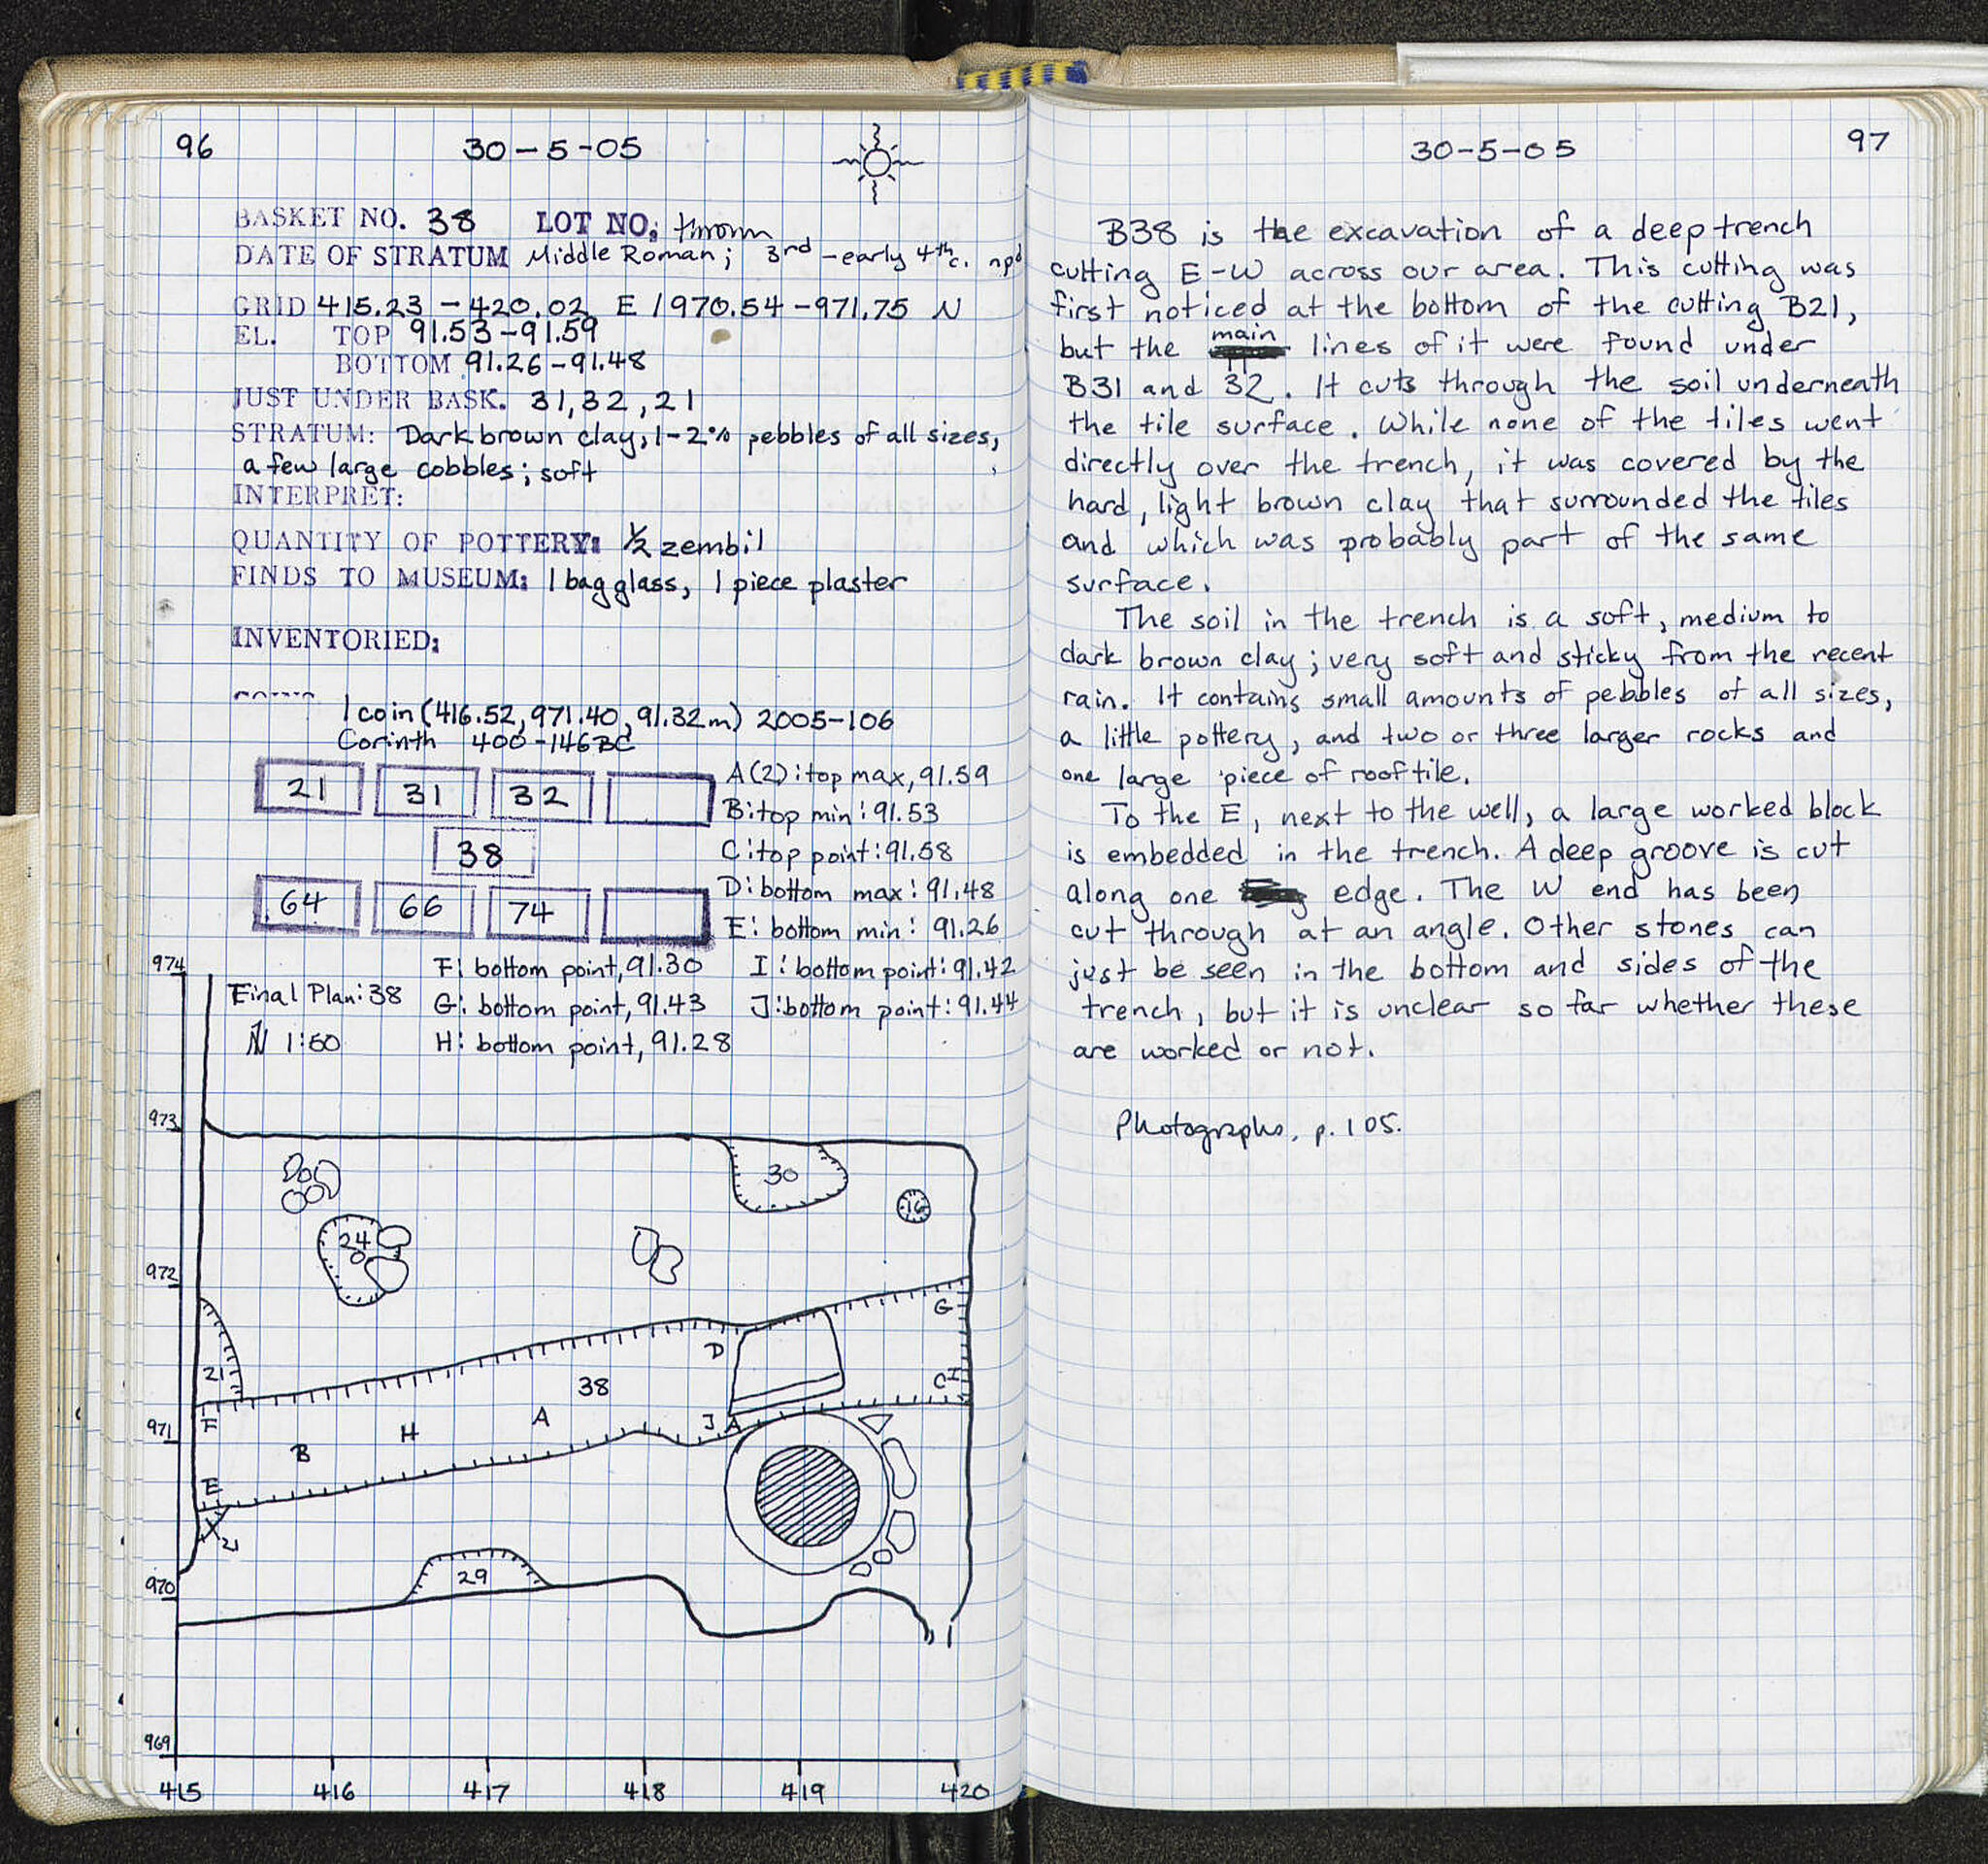 96
30-5-05
BASKET NO. 38 LOT NO: thrown
DATE OF STRATUM Middle Roman; 3rd - early 4th c. npd
GRID 415.23 - 420.02 E / 970.54 - 971.75 N
EL. TOP 91.53 - 91.59
BOTTOM 91.26 - 91.48
JUST UNDER BASK. 31, 32, 21
STRATUM: Dark brown clay, 1-2% pebbles of all sizes,
a few large cobbles; soft
INTERPRET:
QUANTITY OF POTTERY: 1/2 zembil
FINDS TO MUSEUM: 1 bag glass, 1 piece plaster
INVENTORIED:
1 coin (416.52, 971.40, 91.32m) 2005-106
Corinth 400-146 BC
21 31 32
38
64 66 74
A(2): top max, 91.59
B: top min: 91.53
C: top point: 91.58
D: bottom max: 91.48
E: bottom min: 91.26
F: bottom point, 91.30
G: bottom point, 91.43
H: bottom point, 91.28
I: bottom point: 91.42
J: bottom point: 91.44
Final Plan: 38
N 1:50
974
973
972
971
970
969
415 416 417 418 419 420
30
16
24
G
21
D
38
C I
F
H
A
J A
B
E
X 21
29
30-5-05
97
B38 is the excavation of a deep trench
cutting E-W across our area. This cutting was
first noticed at the bottom of the cutting B21,
but the main lines of it were found under
B31 and 32. It cuts through the soil underneath
the tile surface. While none of the tiles went
directly over the trench, it was covered by the
hard, light brown clay that surrounded the tiles
and which was probably part of the same
surface.
The soil in the trench is a soft, medium to
dark brown clay; very soft and sticky from the recent
rain. It contains small amounts of pebbles of all sizes,
a little pottery, and two or three larger rocks and
one large piece of rooftile.
To the E, next to the well, a large worked block
is embedded in the trench. A deep groove is cut
along one edge. The W end has been
cut through at an angle. Other stones can
just be seen in the bottom and sides of the
trench, but it is unclear so far whether these
are worked or not.
Photographs, p. 105.